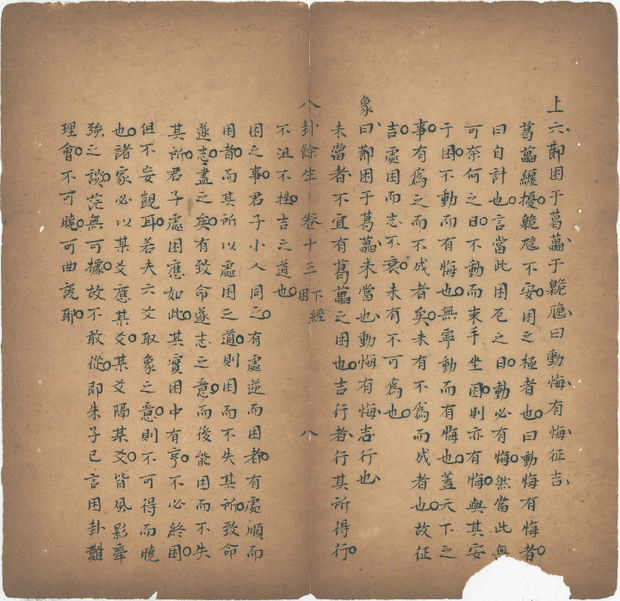 上六䣛困于葛藟于臲卼曰動悔有悔征吉
葛藟纏擾臲卼不安困之極者也曰動悔有悔者
曰自計也言當此困厄之日動必有悔然當此無
可奈何之日不動而束手坐困則亦有悔與其安
于困不動而有悔也無寧動而有悔也蓋天下之
事有爲之而不成者矣未有不爲而成者也故征
吉處困而志不衰未有不可爲也
象曰䣛困于葛藟未當也動悔有悔吉行也
未當者不宜有葛藟之困也吉行者行其所得行
八卦餘生 卷十三 下經 困 八
不沮不挫吉之道也
困之事君子小人同之有處逆而困者有處順而
困者而其所以處困之道則困而不失其所致命
遂志盡之矣有致命遂志之意而後能困而不失
其所君子處困應如此其實困中有亨不必終困
但不妄觀耳若夫六爻取象之意則不可得而曉
也諸家必以某爻應某爻某爻隔某爻皆風影牽
強之談茫無可據故不敢從即朱子已言困卦難
理會不可曉可曲說耶